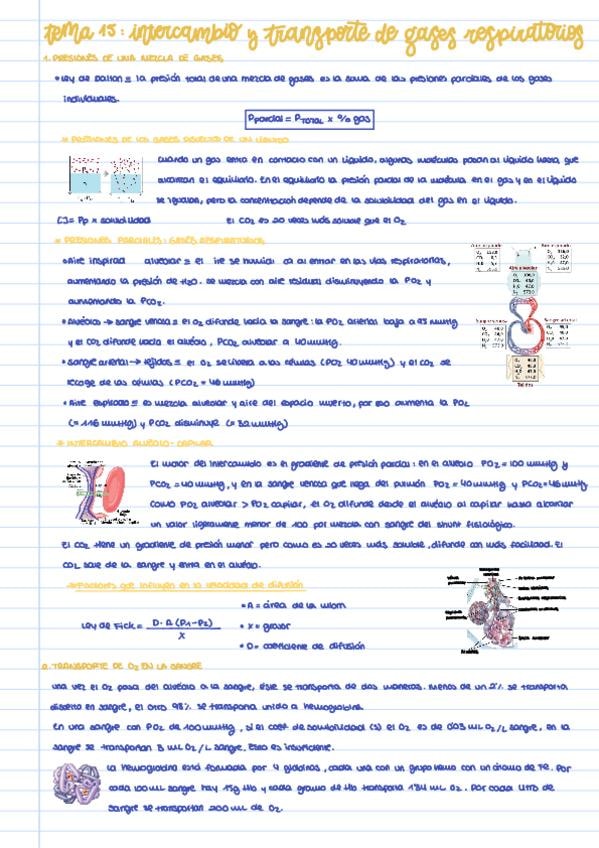 tema 15: intercambio y transporte de gases respiratorios
1. PRESIONES DE UNA MEZCLA DE GASES
• Ley de Dalton = la presión total de una mezcla de gases es la suma de las presiones parciales de los gases
individuales.
Pparcial = PTOTAL x % gas
* PRESIONES DE LOS GASES DISUELTOS DE UN LÍQUIDO
cuando un gas entra en contacto con un líquido, algunas moléculas pasan al líquido hasta que
alcanzan el equilibrio. En el equilibrio la presión parcial de la molécula en el gas y en el líquido
se igualan, pero la concentración depende de la solubilidad del gas en el líquido.
[ ] = Pp x solubilidad
El CO2 es 20 veces más soluble que el O2
* PRESIONES PARCIALES: GASES RESPIRATORIOS
• Aire inspirad alveolar = el ire se humidi ca al entrar en las vías respiratorias,
aumentando la presión de H2O. se mezcla con aire residual disminuyendo la PO2 y
aumentando la PCO2.
• Alvéolo → sangre venosa = el O2 difunde hacia la sangre: la PO2 arterial baja a 95 mmHg
y el CO2 difunde hacia el alvéolo, PCO2 alveolar a 40mmHg.
• sangre arterial → tejidos = el O2 se libera a las células (PO2 40mmHg) y el CO2 se
recoge de las células (PCO2 = 46 mmHg)
• Aire espirado = es mezcla alveolar y aire del espacio muerto, por eso aumenta la PO2
(= 116 mmHg) y PCO2 disminuye (= 32mmHg)
* INTERCAMBIO ALVÉOLO-CAPILAR
El motor del intercambio es el gradiente de presión parcial: en el alvéolo PO2 = 100 mmHg y
PCO2 = 40 mmHg, y en la sangre venosa que llega del pulmón PO2 = 40mmHg y PCO2 = 46mmHg
Como PO2 alveolar > PO2 capilar, el O2 difunde desde el alvéolo al capilar hasta alcanzar
un valor ligeramente menor de 100 por mezcla con sangre del shunt fisiológico.
El CO2 tiene un gradiente de presión menor pero como es 20 veces más soluble, difunde con más facilidad. El
CO2 sale de la sangre y entra en el alvéolo.
→ Factores que influyen en la velocidad de difusión
Ley de Fick = D·A (P1-P2) / X
• A = área de la mbm
• X = grosor
• D = coeficiente de difusión
2. TRANSPORTE DE O2 EN LA SANGRE
una vez el O2 pasa del alvéolo a la sangre, éste se transporta de dos maneras. Menos de un 2% se transporta
disuelto en sangre, el otro 98% se transporta unido a hemoglobina.
En una sangre con PO2 de 100mmHg, si el coef de solubilidad (s) el O2 es de 0'03 mL O2/L sangre, en la
sangre se transportan 3 mL O2/L sangre. Esto es insuficiente.
La hemoglobina está formada por 4 globinas, cada una con un grupo hemo con un átomo de Fe. Por
cada 100mL sangre hay 15g Hb y cada gramo de Hb transporta 1'34 mL O2. Por cada litro de
sangre se transportan 200 mL de O2.